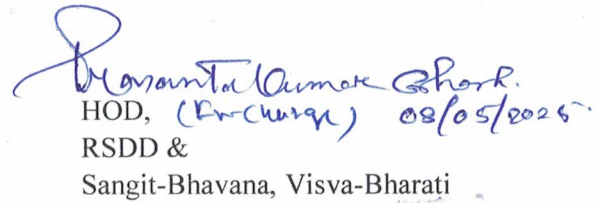 Prasanta Kumar Ghosh.
HOD, (In-charge) 08/05/2025
RSDD &
Sangit-Bhavana, Visva-Bharati